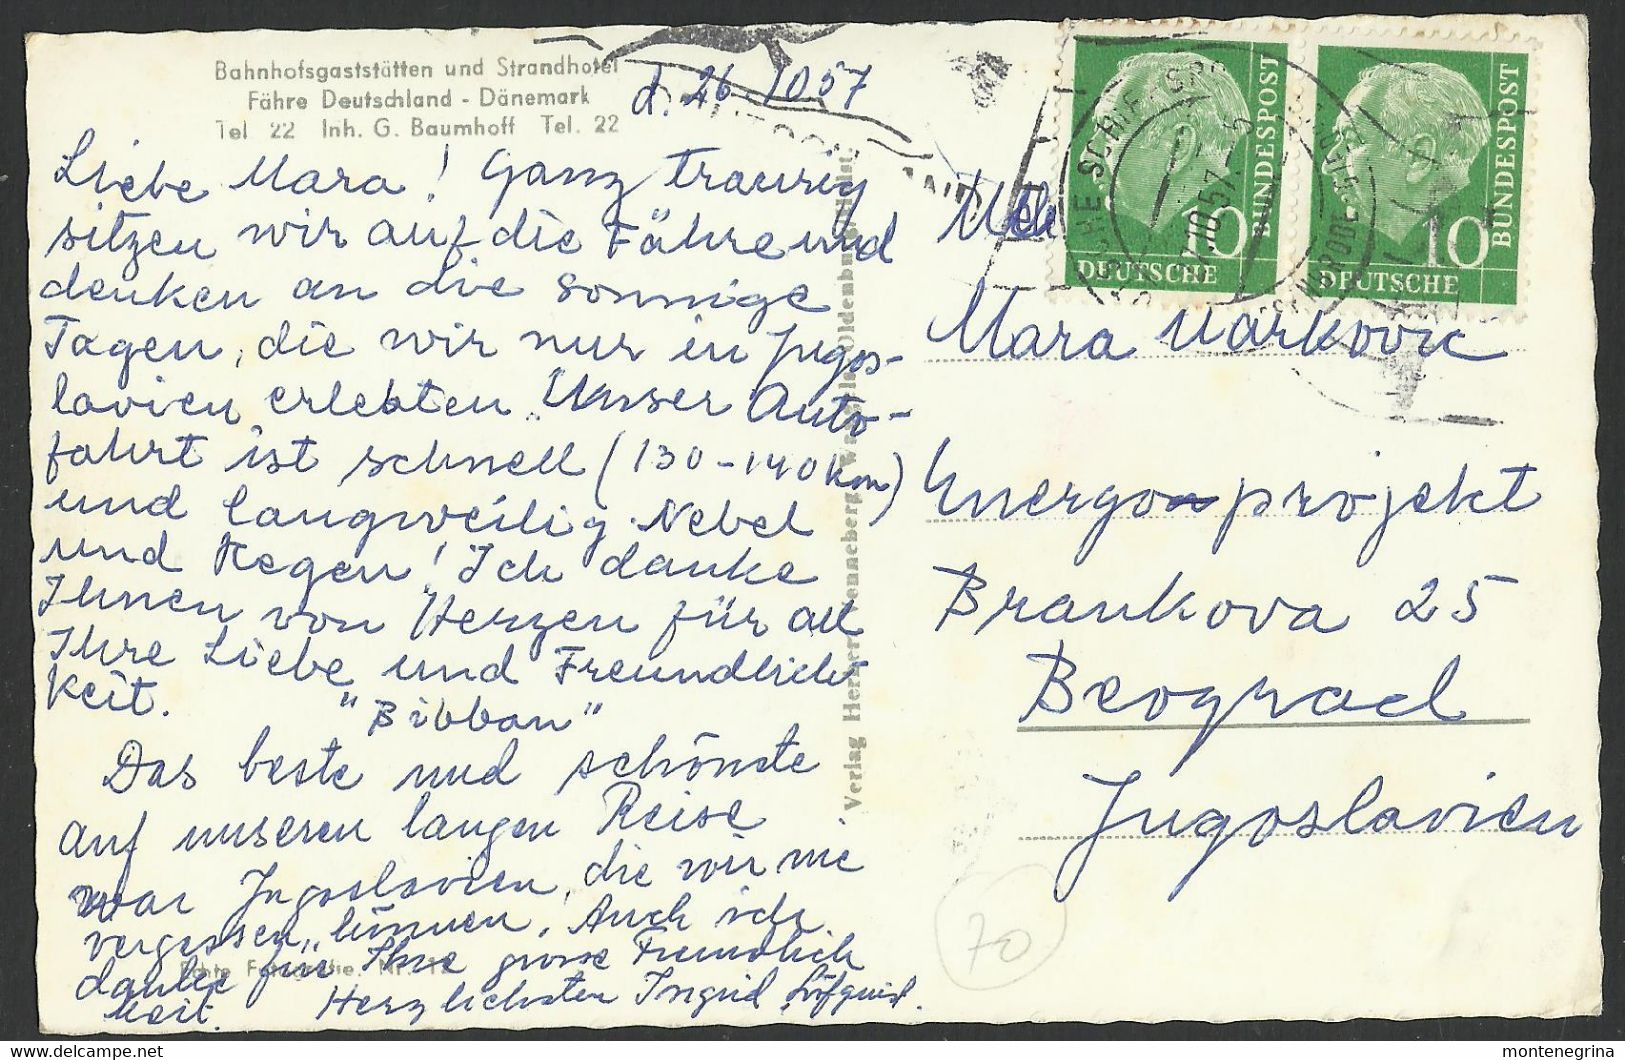 Bahnhofsgaststätten und Strandhotel
Fähre Deutschland - Dänemark
Tel 22 Inh. G. Baumhoff Tel. 22
d. 26. 10 57
Liebe Mara! Ganz traurig
sitzen wir auf die Fähre und
denken an die sonnige
Tagen, die wir nur in Jugos-
lavien erlebten. Unser Auto-
fahrt ist schnell (130-140 km)
und langweilig. Nebel
und Regen! Ich danke
Ihnen von Herzen für all
Ihre Liebe und Freundlich
keit.
"Bibban"
Das beste und schönste
auf unseren langen Reise
war Jugoslavien, die wir nie
vergessen können. Auch ich
danke für Ihre grosse Freundlich
keit.
Herzlichsten Ingrid Löfquist.
Echte Fotografie Nr.
Verlag Herbert Venneberg
Oldenburg
10
DEUTSCHE
BUNDESPOST
10
DEUTSCHE
BUNDESPOST
Mara Markovic
Energoprojekt
Brankova 25
Beograd
Jugoslavien
70
montenegrina